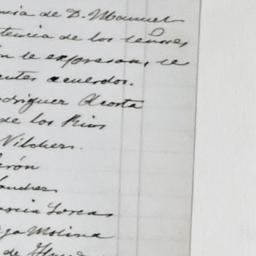 ncia de D. Manuel
tencia de los señores
ón se expresan, se
entes acuerdos.
odriguez Acosta
de los Rios
Vilches.
erón
andres
arcia Lorca
ga Molina
de